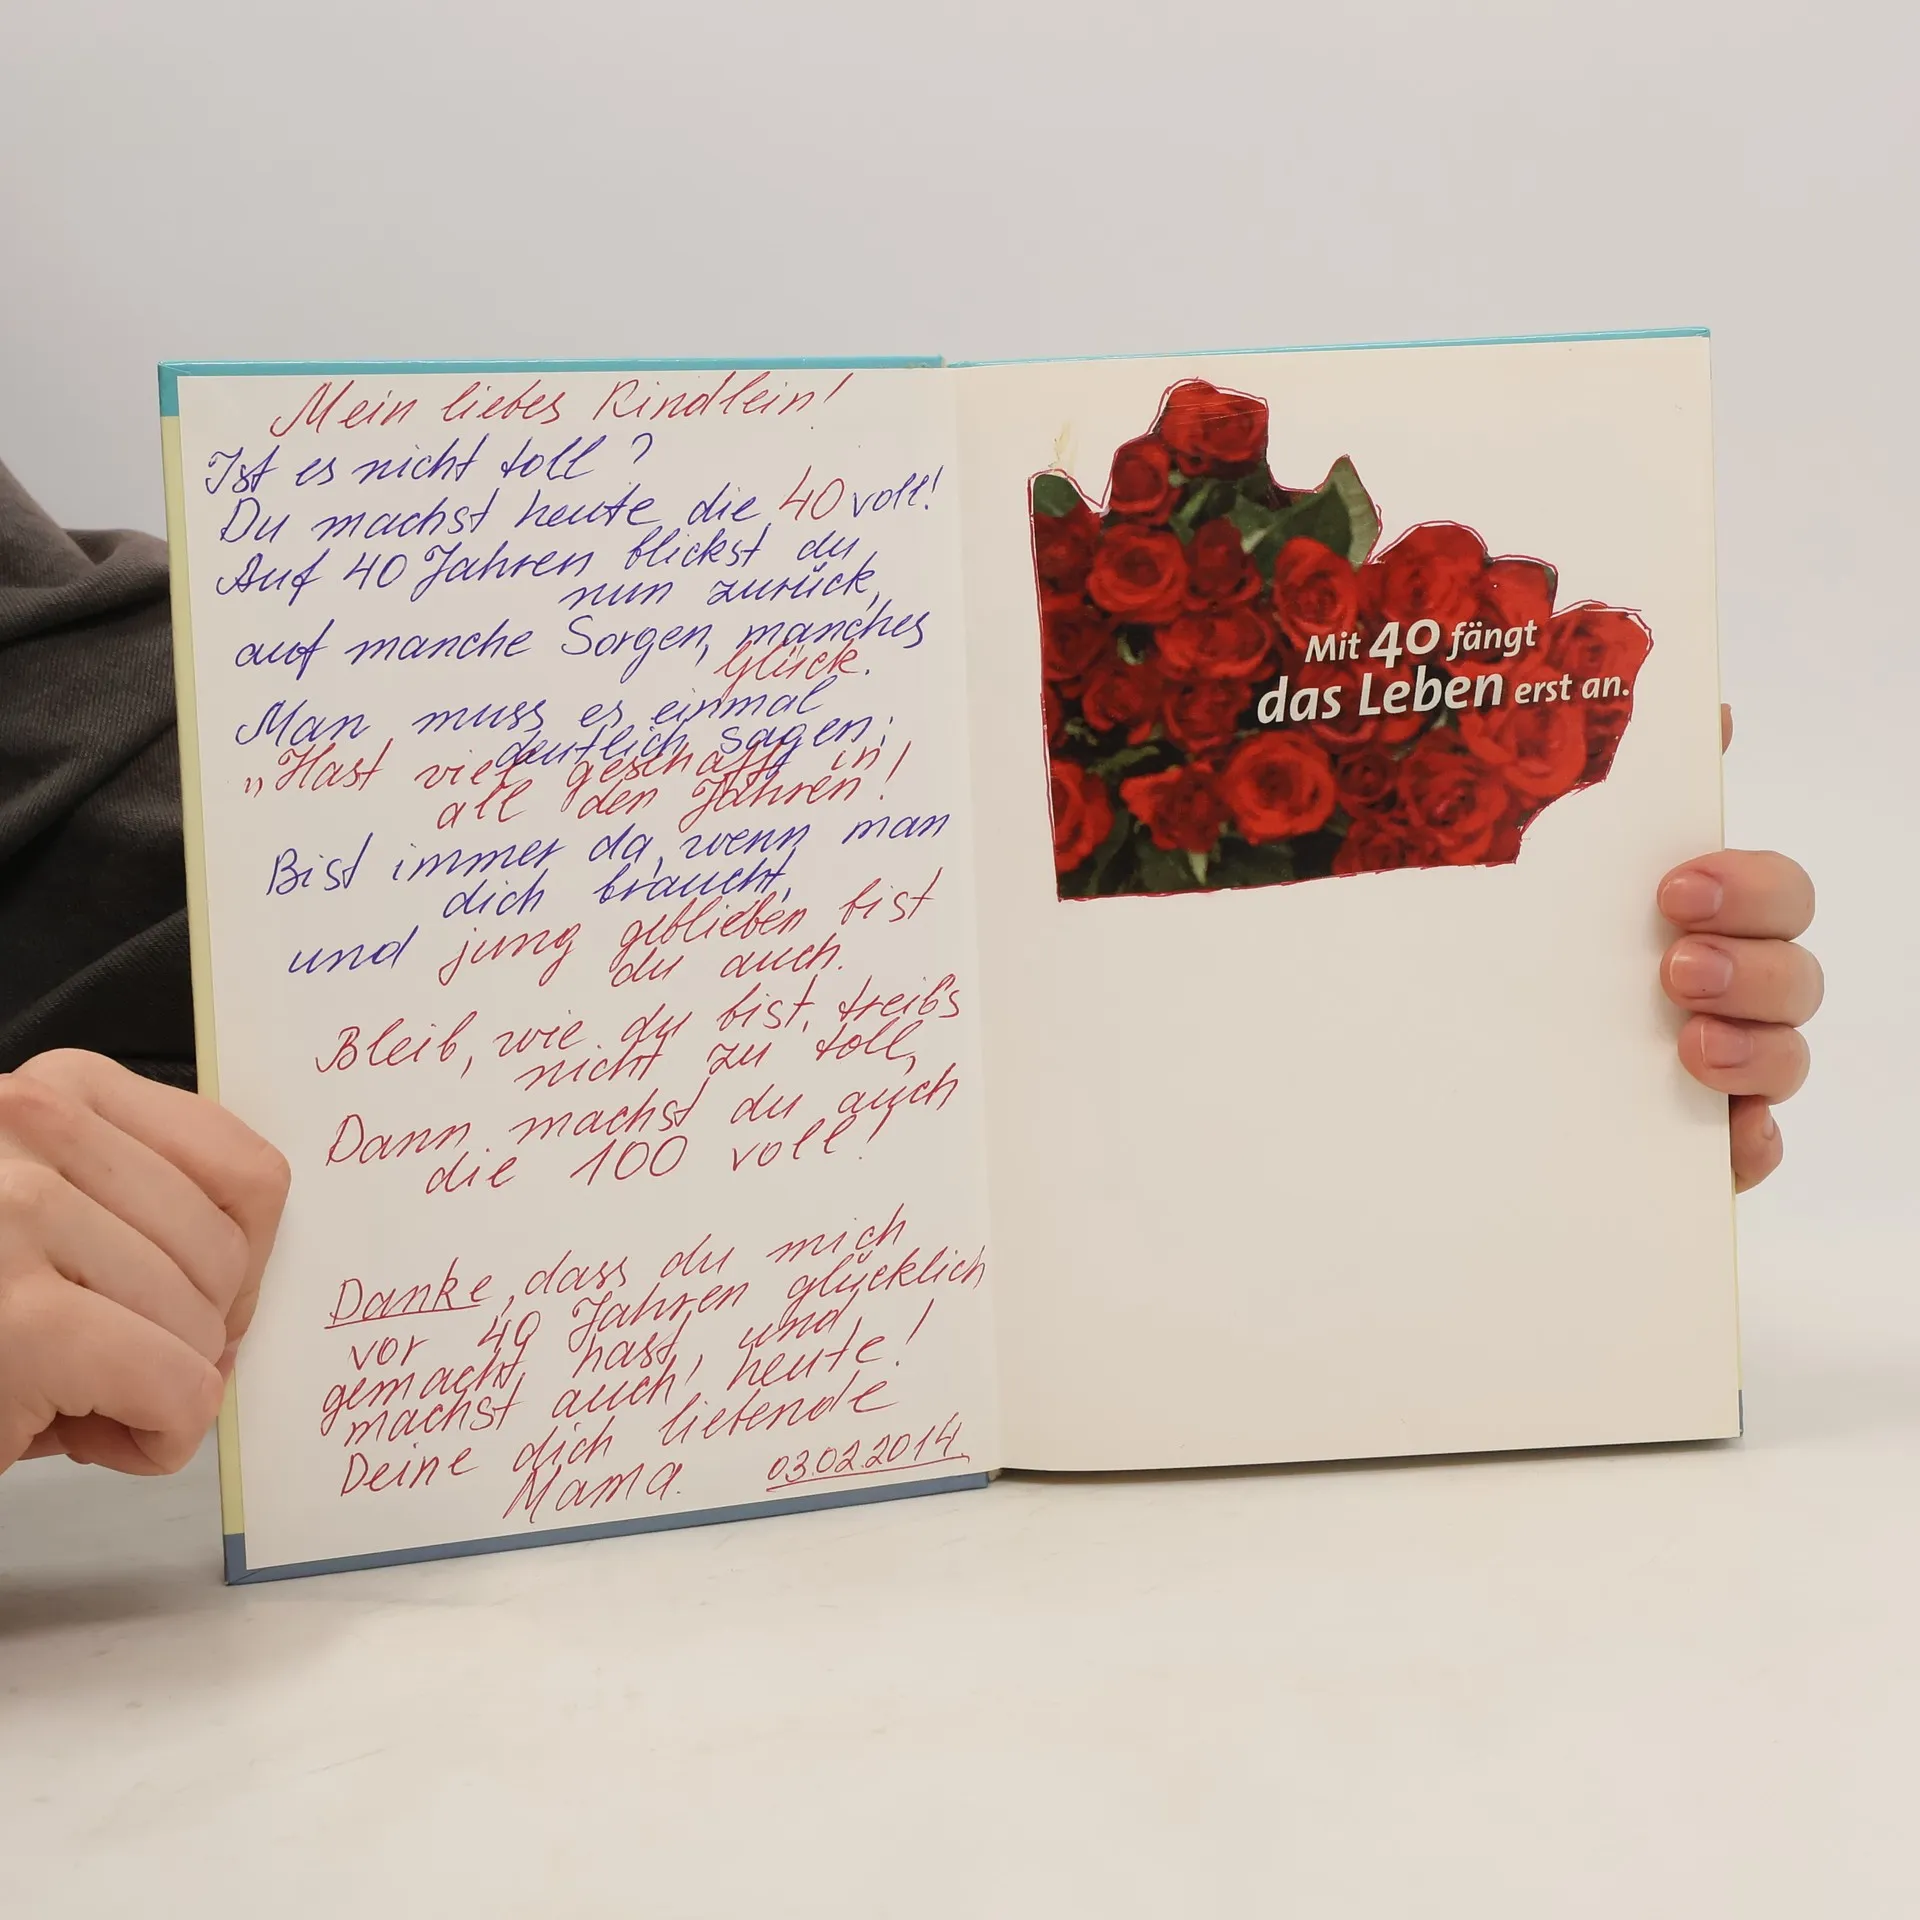 Mein liebes Kindlein!
Ist es nicht toll?
Du machst heute die 40 voll!
Auf 40 Jahren blickst du
nun zurück,
auf manche Sorgen, manches
Glück.
Man muss es einmal
deutlich sagen:
„Hast viel geschafft in
all den Jahren!
Bist immer da, wenn man
dich braucht,
und jung geblieben bist
du auch.
Bleib, wie du bist, treib's
nicht zu toll,
Dann machst du auch
die 100 voll!
Danke, dass du mich
vor 40 Jahren glücklich
gemacht hast, und
machst auch heute!
Deine dich liebende
Mama. 03.02.2014
Mit 40 fängt
das Leben erst an.